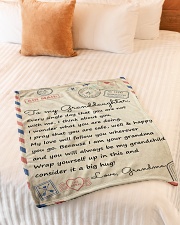 AIR MAIL
To my Granddaughter,
Every single day that you are not
with me, I think about you.
I wonder what you are doing.
I pray that you are safe, well & happy
My love will follow you wherever
you go. Because I am your grandma,
and you will always be my grandchild
Wrap yourself up in this and
consider it a big hug!
Love, Grandma